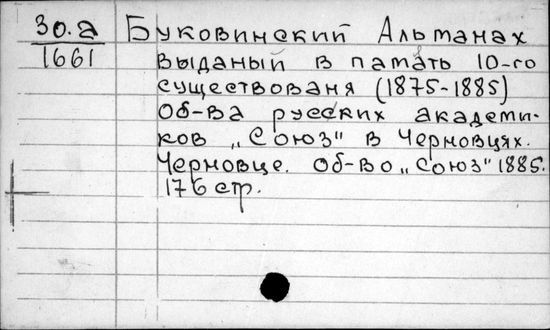 30.а
1661
Буковинский Альманах
выданый в память 10-го
существованя (1875-1885)
об-ва русских академи-
ков „Союз" в Черновцях.
Черновце. Об-во „Союз" 1885.
176 стр.